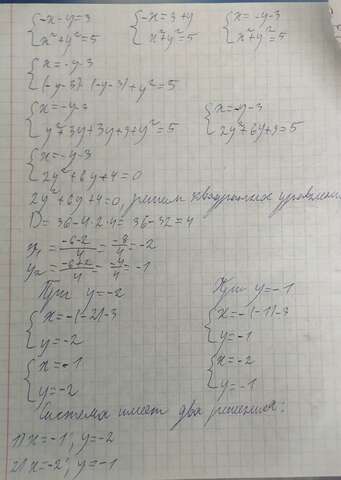 {-x-y=3 {-x=3+y {x=-y-3
{x²+y²=5 {x²+y²=5 {x²+y²=5
{x=-y-3
{(-y-3)·(-y-3)+y²=5
{x=-y-3 {x=-y-3
{y²+3y+3y+9+y²=5 {2y²+6y+9=5
{x=-y-3
{2y²+6y+4=0
2y²+6y+4=0, решаем квадратное уравнение
D=36-4·2·4=36-32=4
y₁=(-6-2)/4=-8/4=-2
y₂=(-6+2)/4=-4/4=-1
При y=-2 При y=-1
{x=-(-2)-3 {x=-(-1)-3
{y=-2 {y=-1
{x=-1 {x=-2
{y=-2 {y=-1
Система имеет два решения:
1) x=-1; y=-2
2) x=-2; y=-1